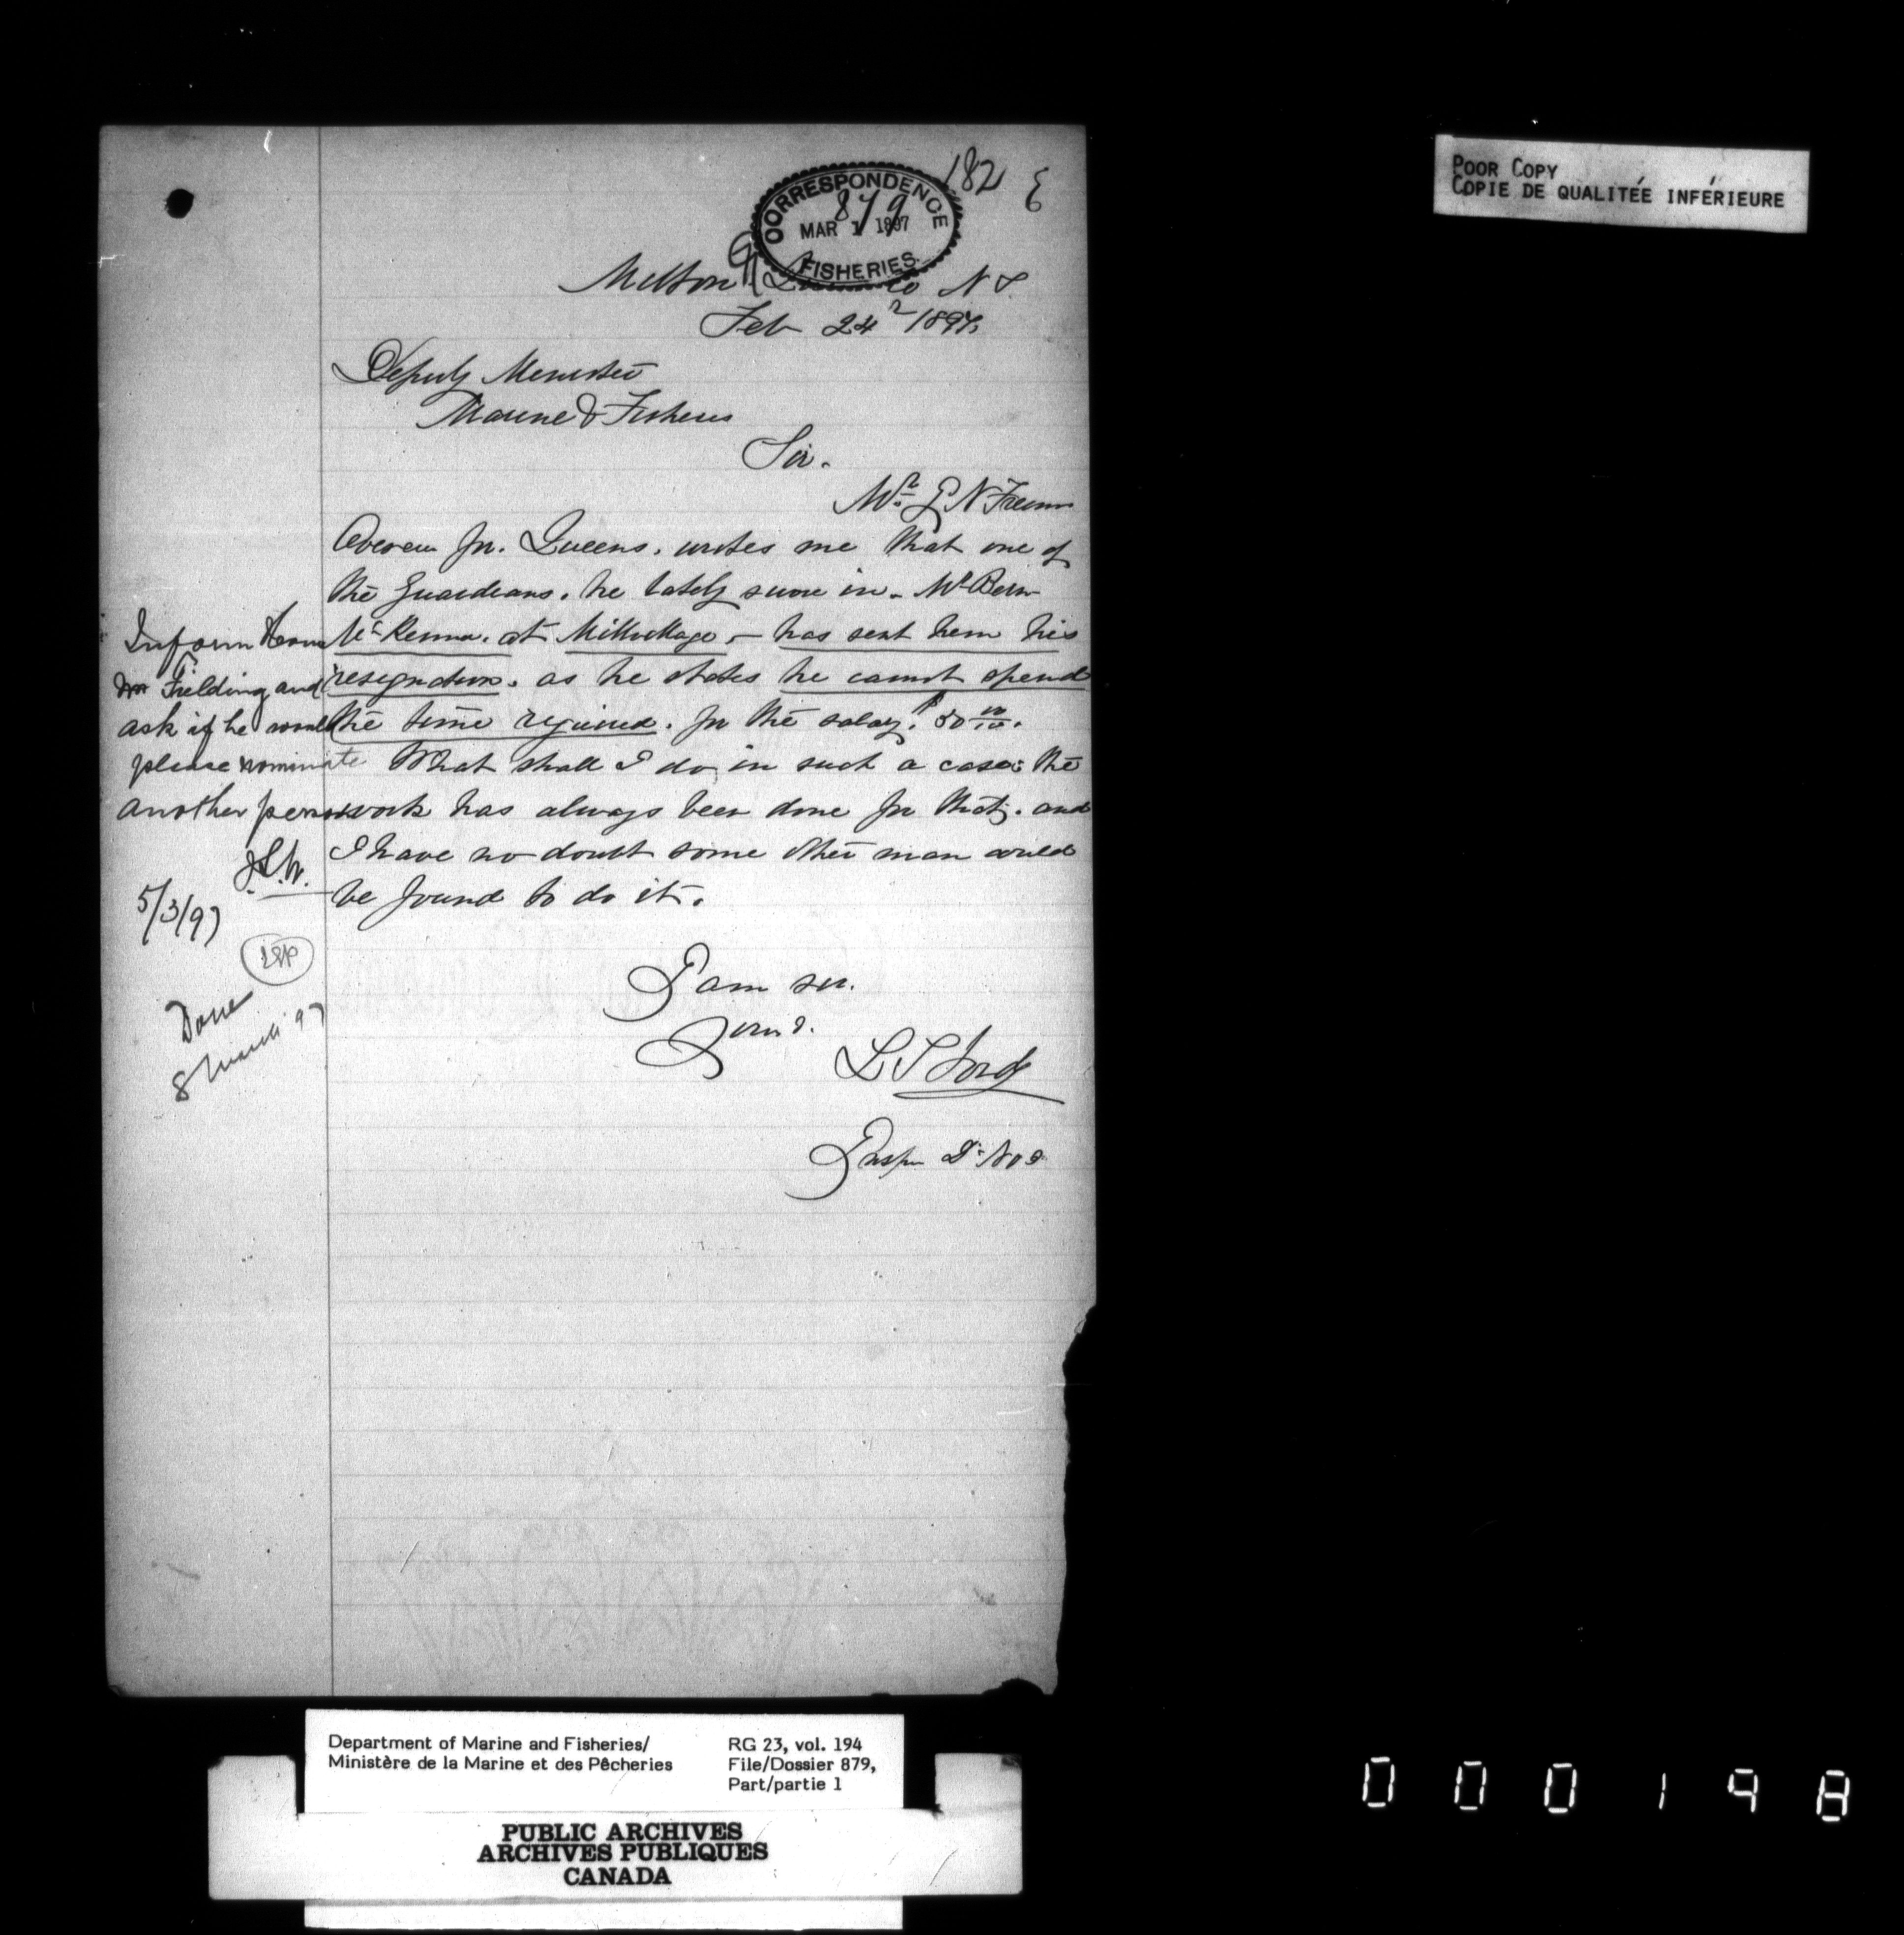 182
CORRESPONDENCE
879
MAR 1 1897
FISHERIES
Milton Q N S
Feb 24 1897
Deputy Minister
Marine & Fisheries
Sir.
Mr. N Freeman
Overseer for Queens. writes me that one of
the Guardians. he lately swore in. Mr
McKenna. at Mill Village – has sent him his
resignation. as he states he cannot spend
the time required. for the salary. $30 00/100.
What shall I do in such a case: the
work has always been done for that. and
I have no doubt some other man could
be found to do it.
I am sir.
Yours.
L S Ford
Insp. D. No 2
Inform Hon
Mr Fielding and
ask if he would
please nominate
another person
5/3/97
Done
8 March '97
POOR COPY
COPIE DE QUALITÉE INFÉRIEURE
Department of Marine and Fisheries/
Ministère de la Marine et des Pêcheries
RG 23, vol. 194
File/Dossier 879,
Part/partie 1
PUBLIC ARCHIVES
ARCHIVES PUBLIQUES
CANADA
000198